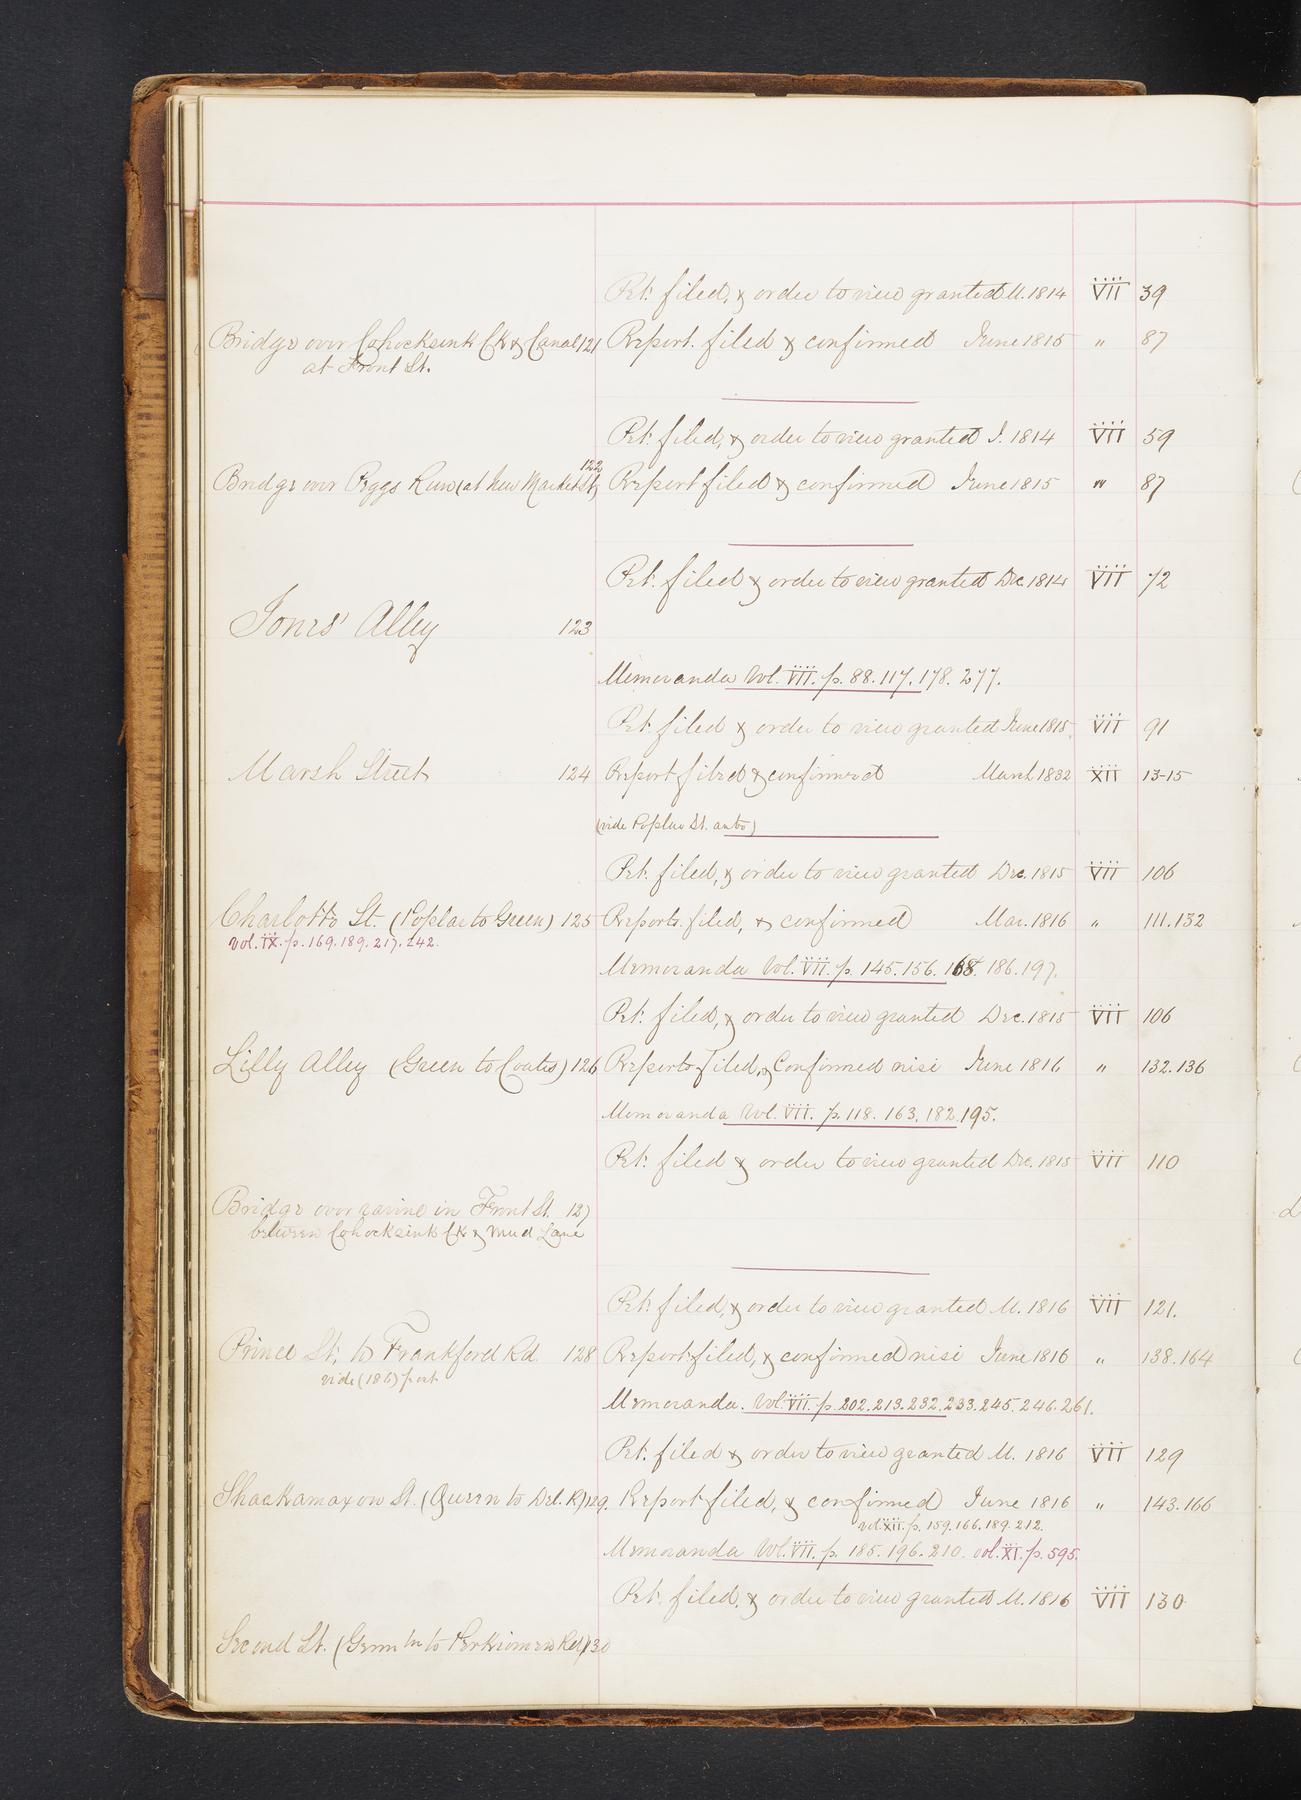 Pet. filed, & order to view granted M. 1814 VII 39
Bridge over Cohocksink Ck & Canal 121 Report filed & confirmed June 1815 " 87
at Front St.
Pet. filed, & order to view granted J. 1814 VII 59
122
Bridge over Peggs Run (at New Market St) Report filed & confirmed June 1815 " 87
Pet. filed & order to view granted Dec 1814 VII 72
Jones' Alley 123
Memoranda Vol. VII. p. 88. 117. 178. 277.
Pet. filed & order to view granted June 1815 VII 91
Marsh Street 124 Report filed & confirmed March 1832 XII 13-15
(vide Poplar St. ante)
Pet. filed, & order to view granted Dec. 1815 VII 106
Charlotte St. (Poplar to Green) 125 Reports filed, & confirmed Mar. 1816 " 111.132
Vol. IX. p. 169. 189. 217. 242.
Memoranda Vol. VII. p. 145. 156. 168. 186. 197.
Pet. filed, & order to view granted Dec. 1815 VII 106
Lilly Alley (Green to Coates) 126 Reports filed, & Confirmed nisi June 1816 " 132.136
Memoranda Vol. VII. p. 118. 163. 182. 195.
Pet. filed & order to view granted Dec. 1815 VII 110
Bridge over ravine in Front St. 127
between Cohocksink Ck & Mud Lane
Pet. filed, & order to view granted M. 1816 VII 121.
Prince St. to Frankford Rd. 128 Report filed, & confirmed nisi June 1816 " 138.164
vide (186) post
Memoranda. Vol. VII. p. 202. 213. 232. 233. 245. 246. 261.
Pet. filed & order to view granted M. 1816 VII 129
Shackamaxon St. (Queen to Del. R) 129. Report filed, & confirmed June 1816 " 143.166
Vol. XII. p. 159. 166. 189. 212.
Memoranda Vol. VII. p. 185. 196. 210. Vol. XI. p. 595.
Pet. filed, & order to view granted M. 1816 VII 130
Second St. (Germ tn to Perkiomen Rd) 130